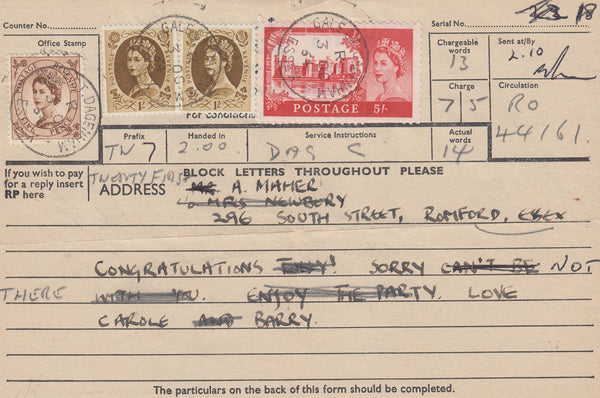 Counter No.
Serial No. 18
Office Stamp
Chargeable words 13
Sent at/By 2.10
POSTAGE 5/-
Charge 7/5
Circulation RO
44/61.
For conditions
Actual words 14
Prefix TN7
Handed in 2.00
Service Instructions DAG C
If you wish to pay for a reply insert RP here
BLOCK LETTERS THROUGHOUT PLEASE
TWENTY FIRST
ADDRESS Mr A. MAHER
c/o MRS NEWBERY
296 SOUTH STREET, ROMFORD, ESSEX
CONGRATULATIONS TONY! SORRY CAN'T BE NOT
THERE WITH YOU. ENJOY THE PARTY. LOVE
CAROLE AND BARRY.
The particulars on the back of this form should be completed.